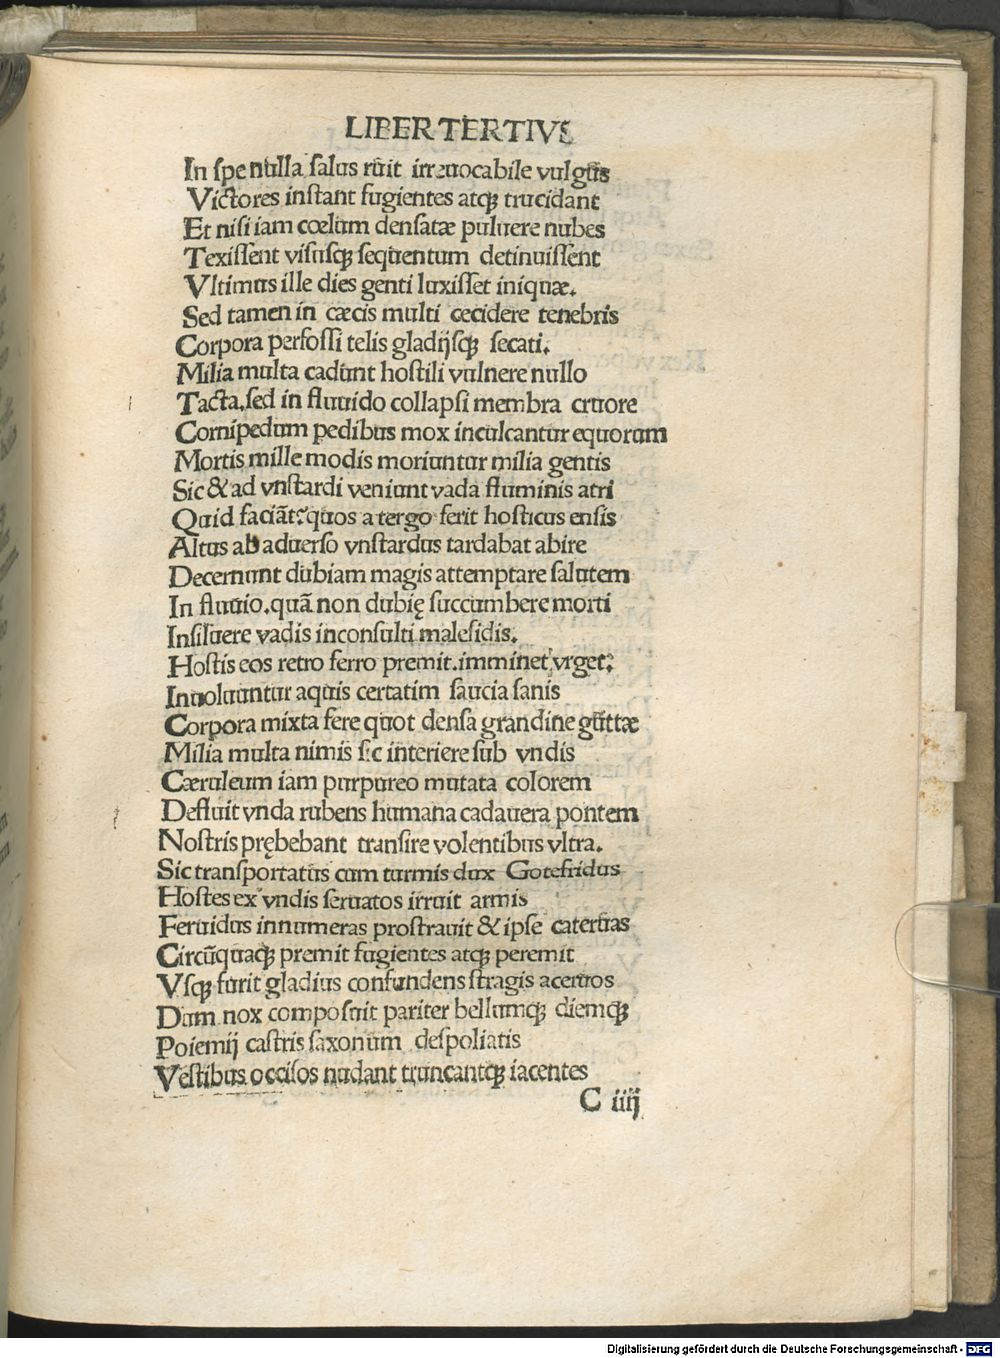 LIBER TERTIVS
In spe nulla salus ruit irreuocabile vulgus
Victores instant fugientes atqꝫ trucidant
Et nisi iam cœlum densatæ puluere nubes
Texissent visusqꝫ sequentum detinuissent
Vltimus ille dies genti luxisset iniquæ.
Sed tamen in cæcis multi cecidere tenebris
Corpora perfossi telis gladijsqꝫ secati.
Milia multa cadunt hostili vulnere nullo
Tacta.sed in fluuido collapsi membra cruore
Cornipedum pedibus mox inculcantur equorum
Mortis mille modis moriuntur milia gentis
Sic & ad vnstardi veniunt vada fluminis atri
Quid faciãt?quos a tergo ferit hosticus ensis
Altus ab aduerso vnstardus tardabat abire
Decernunt dubiam magis attemptare salutem
In fluuio.quã non dubię succumbere morti
Insiluere vadis inconsulti malefidis.
Hostis eos retro ferro premit.imminet vrget?
Inuoluuntur aquis certatim saucia sanis
Corpora mixta fere quot densa grandine guttæ
Milia multa nimis sic interiere sub vndis
Cæruleum iam purpureo mutata colorem
Defluit vnda rubens humana cadauera pontem
Nostris prębebant transire volentibus vltra.
Sic transportatus cum turmis dux Gotefridus
Hostes ex vndis seruatos irruit armis
Feruidus innumeras prostrauit & ipse cateruas
Circũquaqꝫ premit fugientes atqꝫ peremit
Vsqꝫ furit gladius confundens stragis aceruos
Dum nox composuit pariter bellumqꝫ diemqꝫ
Poiemij castris saxonum despoliatis
Vestibus occisos nudant truncantqꝫ iacentes
C iiij
Digitalisierung gefördert durch die Deutsche Forschungsgemeinschaft - DFG